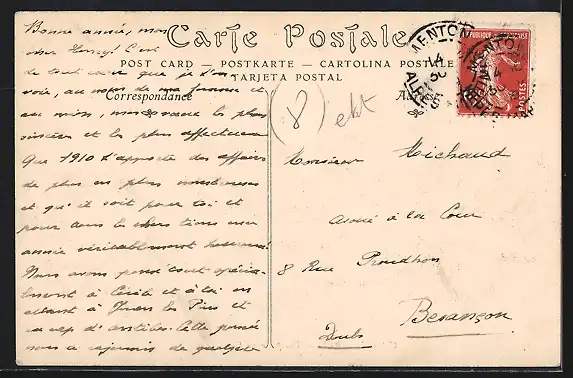 Bonne année, mon
cher Henry! C'est
de tout cœur que je t'en
voie, au nom de ma femme et
au mien, nos vœux les plus
sincères et les plus affectueux
Que 1910 t'apporte des affaires
de plus en plus nombreuses
et qu'il soit pour toi et
pour tous les tiens une
année véritablement heureuse!
Nous avons pensé tout spécia-
lement à Cécile et à toi en
allant à Juan les Pins et
au cap d'Antibes. Cette pensée
nous a
Carte Postale
POST CARD — POSTKARTE — CARTOLINA POSTALE
TARJETA POSTAL
Correspondance
(8) ekt
MENTON
ALPES
RÉPUBLIQUE FRANÇAISE
POSTES
Monsieur Michaud
avoué à la Cour
8 Rue Proudhon
Besançon
Doubs